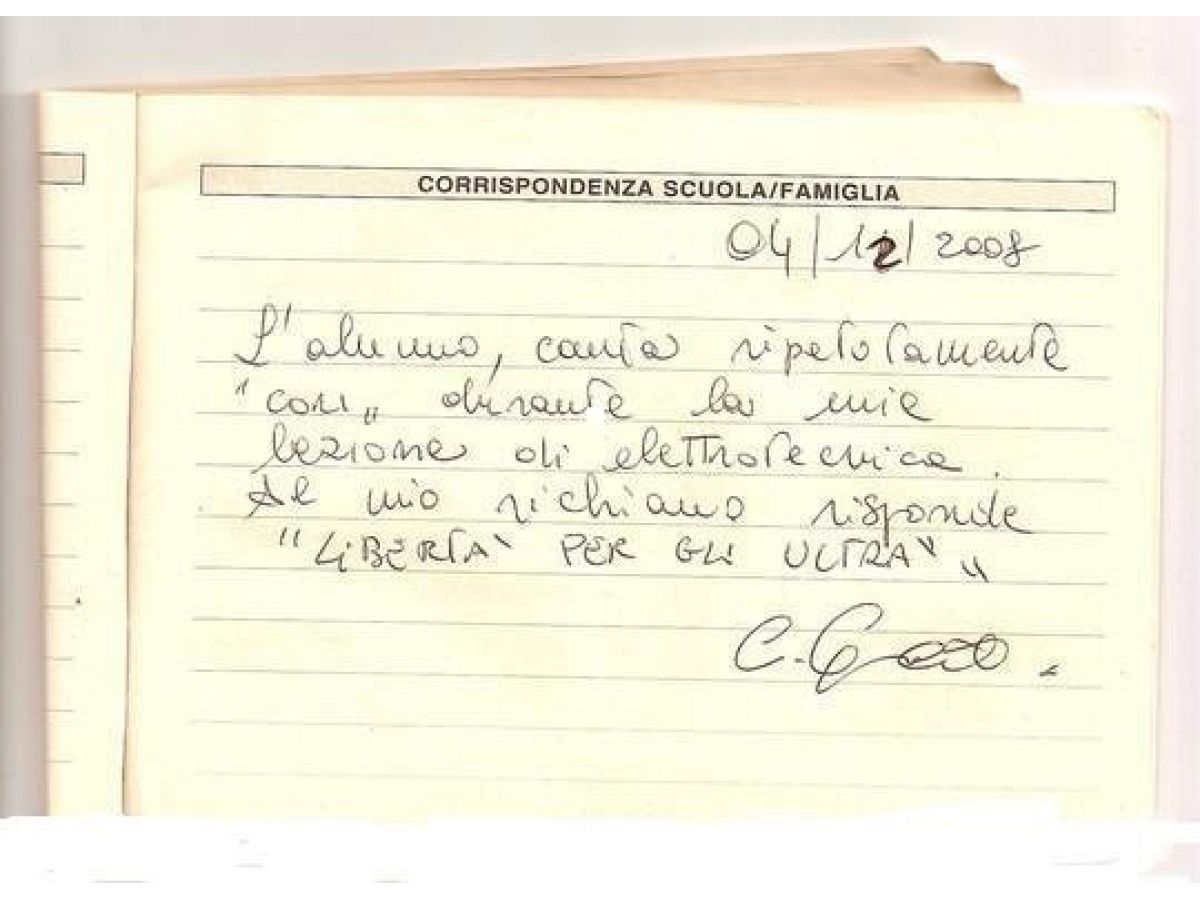 CORRISPONDENZA SCUOLA/FAMIGLIA
04/12/2008
L'alunno, canta ripetutamente
"cori" durante la mia
lezione di elettrotecnica.
Al mio richiamo risponde
"LIBERTA' PER GLI ULTRA'"
C.